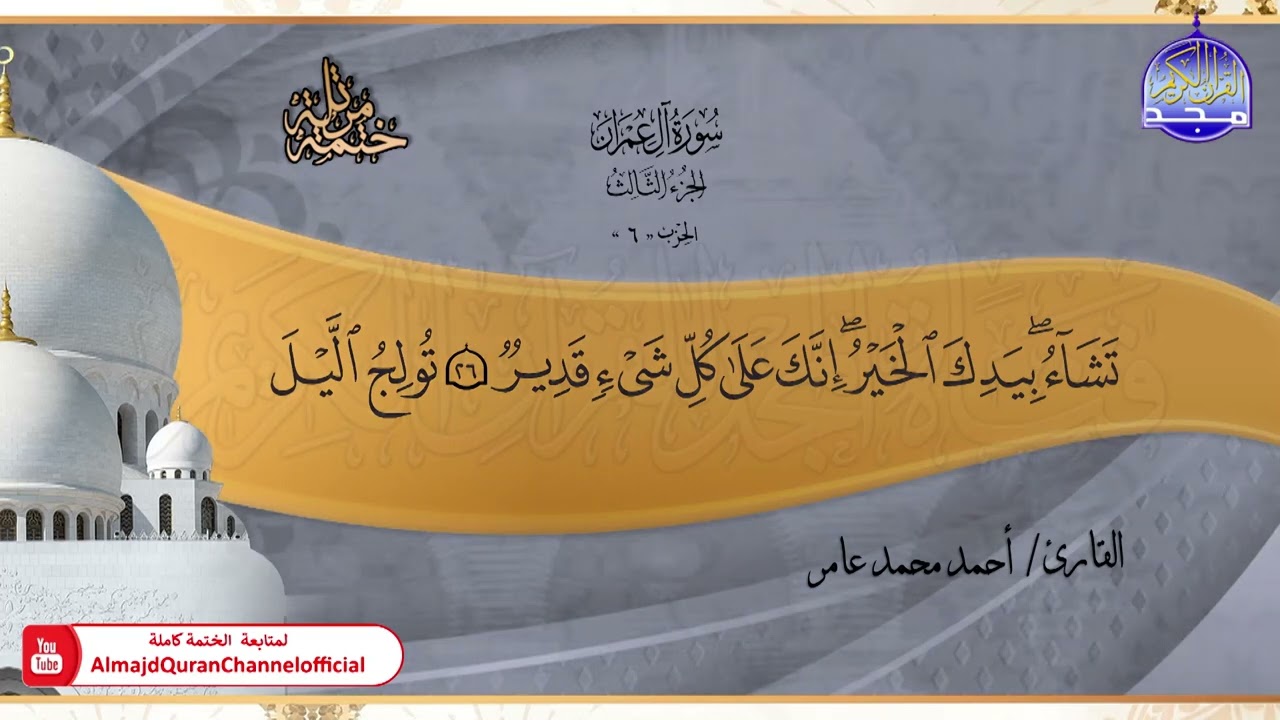 ختمة مرتلة
سُورَةُ آلِ عِمْرَان
الجُزْءُ الثَّالِثُ
الحِزْب « ٦ »
القرآن الكريم
مجد
تَشَآءُۖ بِيَدِكَ ٱلْخَيْرُۖ إِنَّكَ عَلَىٰ كُلِّ شَىْءٍ قَدِيرٌ ٢٦ تُولِجُ ٱلَّيْلَ
القارئ / أحمد محمد عامر
لمتابعة الختمة كاملة
You Tube AlmajdQuranChannelofficial